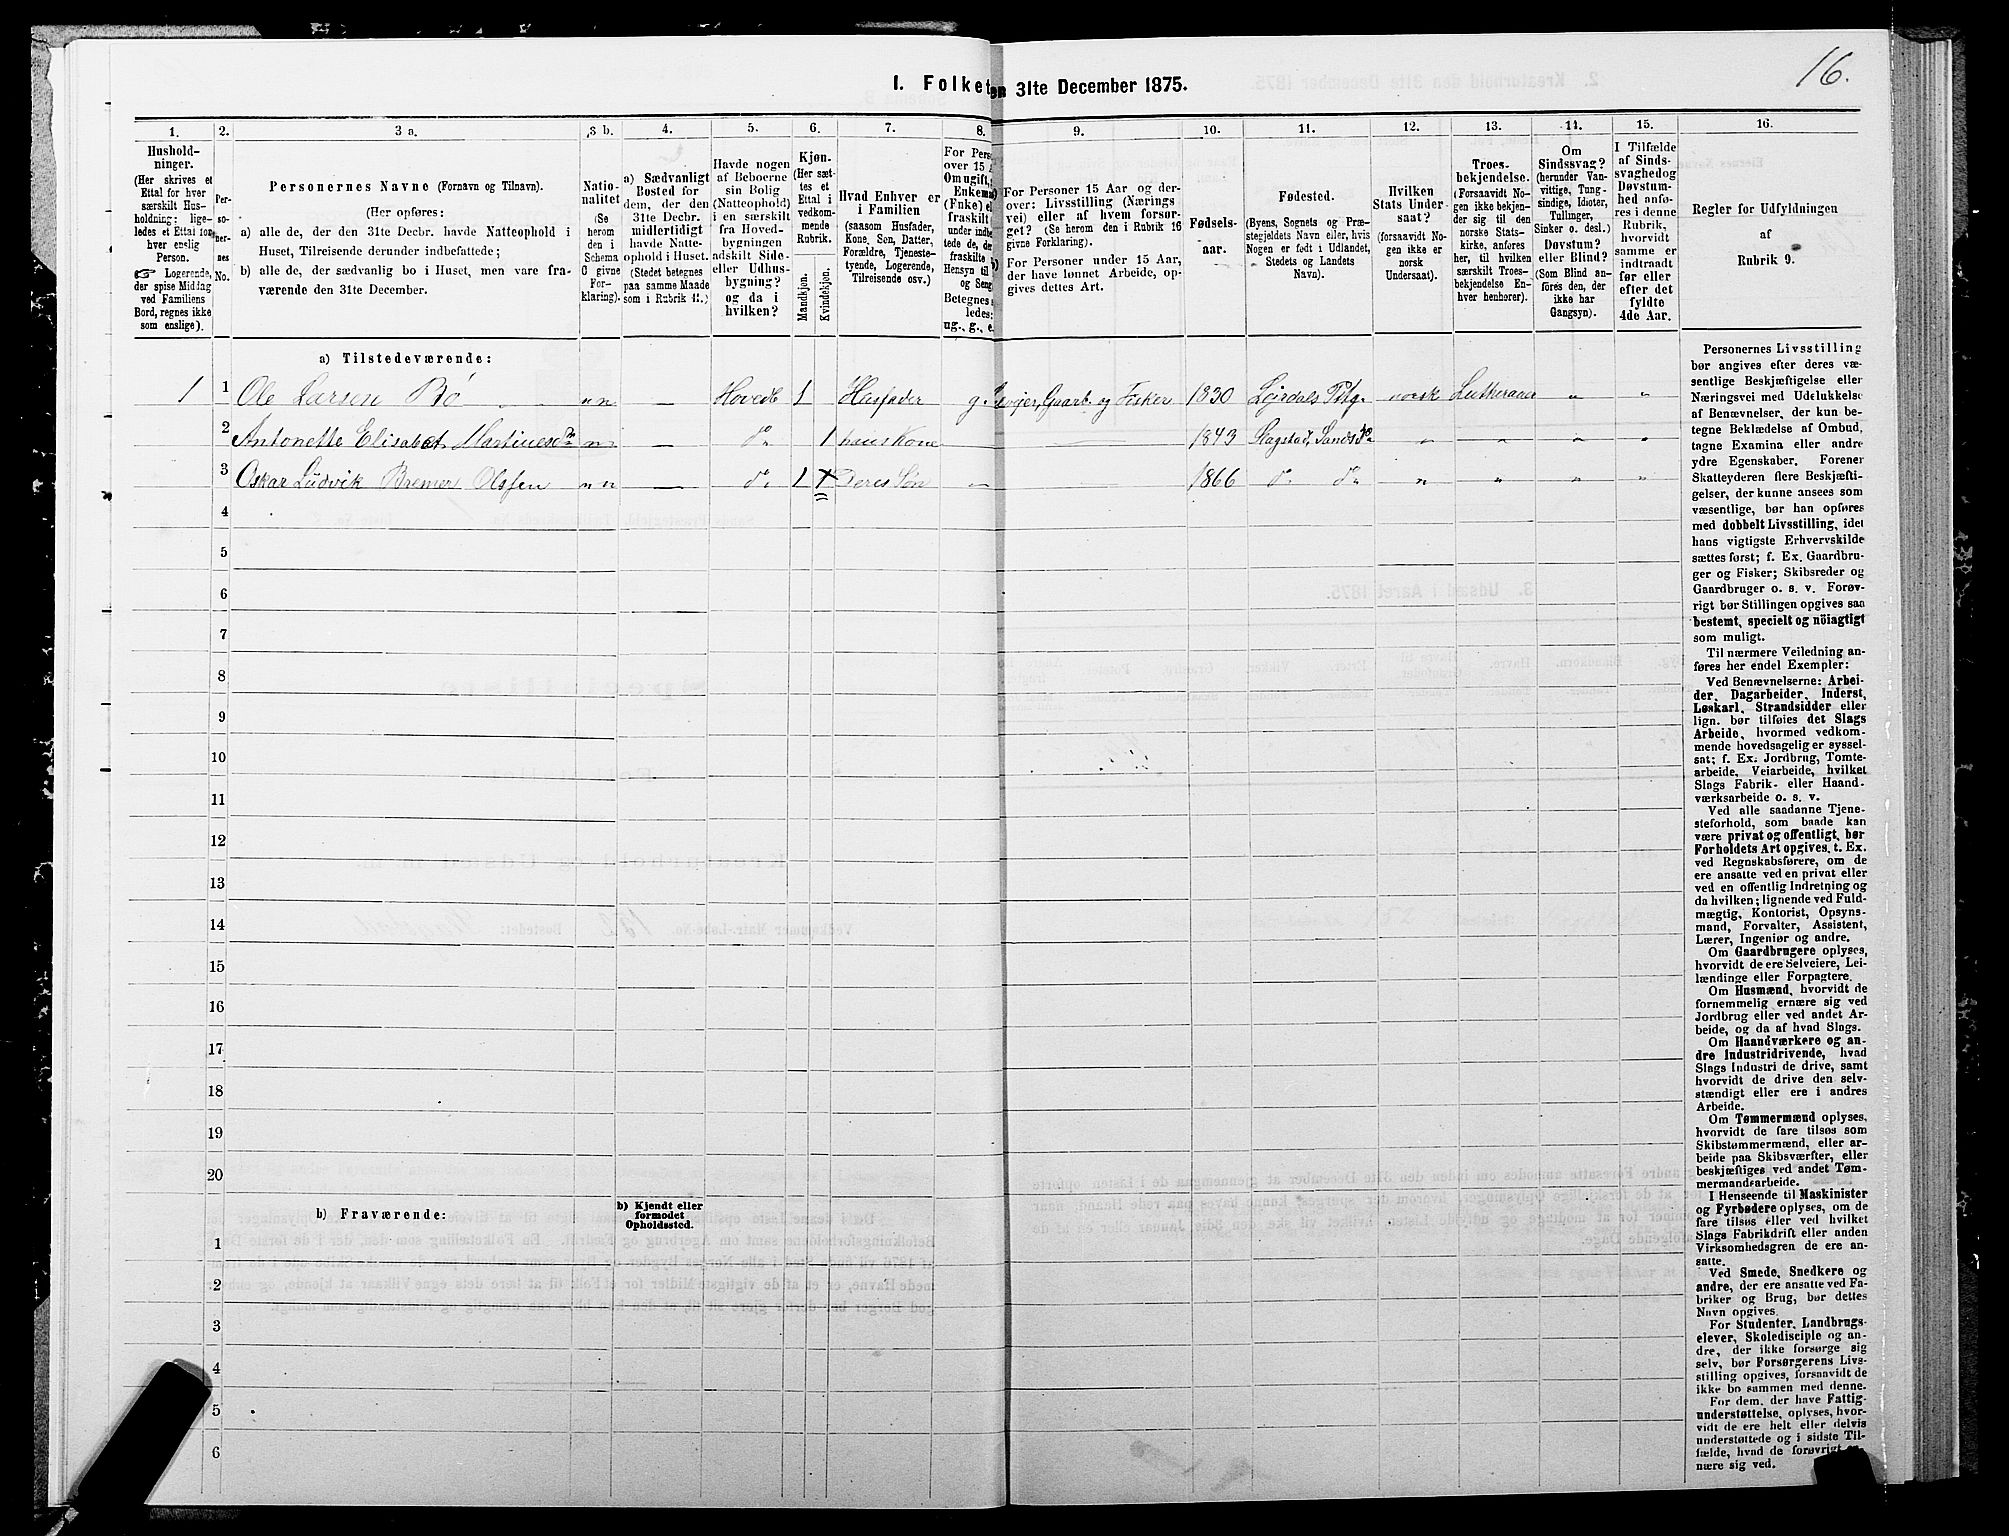 16.
1. Folket en 31te December 1875.
1. 2. 3 a. 3 b. 4. 5. 6. 7. 8. 9. 10. 11. 12. 13. 14. 15. 16.
Hushold-
ninger.
(Her skrives et
Ettal for hver
særskilt Hus-
holdning; lige-
ledes et Ettal for
hver enslig
Person.
☞ Logerende,
der spise Middag
ved Familiens
Bord, regnes ikke
som enslige).
Per-
so-
ner-
nes
No.
Personernes Navne (Fornavn og Tilnavn).
(Her opføres:
a) alle de, der den 31te Decbr. havde Natteophold i
Huset, Tilreisende derunder indbefattede;
b) alle de, der sædvanlig bo i Huset, men vare fra-
værende den 31te December.
Natio-
nalitet
(Se
herom
den i
Schema
C givne
For-
klaring).
a) Sædvanligt
Bosted for
dem, der den
31te Decbr.
midlertidigt
havde Natte-
ophold i Huset.
(Stedet betegnes
paa samme Maade
som i Rubrik 11.)
Havde nogen
af Beboerne
sin Bolig
(Natteophold)
i en særskilt
fra Hoved-
bygningen
adskilt Side-
eller Udhus-
bygning?
og da i
hvilken?
Kjøn.
(Her sæt-
tes et
Ettal i
vedkom-
mende
Rubrik.
Mandkjøn.
Kvindekjøn.
Hvad Enhver er
i Familien
(saasom Husfader,
Kone, Søn, Datter,
Forældre, Tjeneste-
tyende, Logerende,
Tilreisende osv.)
For Pers
over 15 A
Om ugift,
Enkema
(Fnke) el
fraskilt
under indbe
tede de, der
fraskilte
Hensyn til
og Seng
Betegnes s
ledes:
ug., g., e.
For Personer 15 Aar og der-
over: Livsstilling (Nærings
vei) eller af hvem forsør-
get? (Se herom den i Rubrik 16
givne Forklaring).
For Personer under 15 Aar,
der have lønnet Arbeide, op-
gives dettes Art.
Fødsels-
aar.
Fødested.
(Byens, Sognets og Præ-
stegjeldets Navn eller, hvis
Nogen er født i Udlandet,
Stedets og Landets
Navn).
Hvilken
Stats Under-
saat?
(forsaavidt No-
gen ikke er
norsk
Undersaat).
Troes-
bekjendelse.
(Forsaavidt No-
gen ikke bekjen-
der sig til den
norske Stats-
kirke, anføres
her, til hvilken
særskilt Troes-
bekjendelse En-
hver henhører).
Om
Sindssvag?
(herunder Van-
vittige, Tung-
sindige, Idioter,
Tullinger,
Sinker o. desl.)
Døvstum?
eller Blind?
(Som Blind an-
føres den, der
ikke har
Gangsyn).
I Tilfælde
af Sinds-
svaghed og
Døvstum-
hed anfø-
res i denne
Rubrik,
hvorvidt
samme er
indtraadt
før eller
efter det
fyldte
4de Aar.
Regler for Udfyldningen
af
Rubrik 9.
a) Tilstedeværende:
1 1 Ole Larsen Bø " n n — Hovedb 1 Husfader g. Selvejer, Gaarb. og Fisker 1830 Lejrdals Pstg. norsk Lutheraner " "
2 Antonette Elisabet Martinesdtr n — do 1 hans Kone 1843 Slagstad, Sands do " " " "
3 Oskar Ludvik Bremer Olssen n n — do 1 Deres Søn — 1866 do do " " " "
4
5
6
7
8
9
10
11
12
13
14
15
16
17
18
19
20
b) Fraværende:
b) Kjendt eller
formodet
Opholdssted.
1
2
3
4
5
6
Personernes Livsstilling
bør angives efter deres væ-
sentlige Beskjæftigelse eller
Næringsvei med Udelukkelse
af Benævnelser, der kun be-
tegne Beklædelse af Ombud,
tagne Examina eller andre
ydre Egenskaber. Forener
Skatteyderen flere Beskjæfti-
gelser, der kunne ansees som
væsentlige, bør han opføres
med dobbelt Livsstilling, idet
hans vigtigste Erhvervskilde
sættes først; f. Ex. Gaardbru-
ger og Fisker; Skibsreder og
Gaardbruger o. s. v. Forøv-
rigt bør Stillingen opgives saa
bestemt, specielt og nöiagtigt
som muligt.
Til nærmere Veiledning an-
føres her endel Exempler:
Ved Benævnelserne: Arbei-
der, Dagarbeider, Inderst,
Løskarl, Strandsidder eller
lign. bør tilføies det Slags
Arbeide, hvormed vedkom-
mende hovedsagelig er syssel-
sat; f. Ex. Jordbrug, Tomte-
arbeide, Veiarbeide, hvilket
Slags Fabrik- eller Haand-
værksarbeide o. s. v.
Ved alle saadanne Tjene-
steforhold, som baade kan
være privat og offentligt, bør
Forholdets Art opgives, t. Ex.
ved Regnskabsførere, om de
ere ansatte ved en privat eller
ved en offentlig Indretning og
da hvilken; lignende ved Fuld-
mægtig, Kontorist, Opsyns-
mand, Forvalter, Assistent,
Lærer, Ingeniør og andre.
Om Gaardbrugere oplyses,
hvorvidt de ere Selveiere, Lei-
lændinge eller Forpagtere.
Om Husmænd, hvorvidt de
fornemmelig ernære sig ved
Jordbrug eller ved andet Ar-
beide, og da af hvad Slags.
Om Haandværkere og an-
dre Industridrivende, hvad
Slags Industri de drive, samt
hvorvidt de drive den selv-
stændigt eller ere i andres
Arbeide.
Om Tømmermænd oplyses,
hvorvidt de fare tilsøs som
Skibstømmermænd, eller ar-
beide paa Skibsværfter, eller
beskjæftiges ved andet Tøm-
mermandsarbeide.
I Henseende til Maskinister
og Fyrbødere oplyses, om de
fare tilsøs eller ved hvilket
Slags Fabrikdrift eller anden
Virksomhedsgren de ere an-
satte.
Ved Smede, Snedkere og
andre, der ere ansatte ved Fa-
briker og Brug, bør dettes
Navn opgives.
For Studenter, Landbrugs-
elever, Skoledisciple og an-
dre, der ikke forsørge sig
selv, bør Forsørgerens Livs-
stilling opgives, forsaavidt de
ikke bo sammen med denne.
For dem, der have Fattig-
understøttelse, oplyses, hvor-
vidt de ere helt eller delvis
understøttede og i sidste Til-
fælde, hvad de forøvrigt er-
nære sig ved.